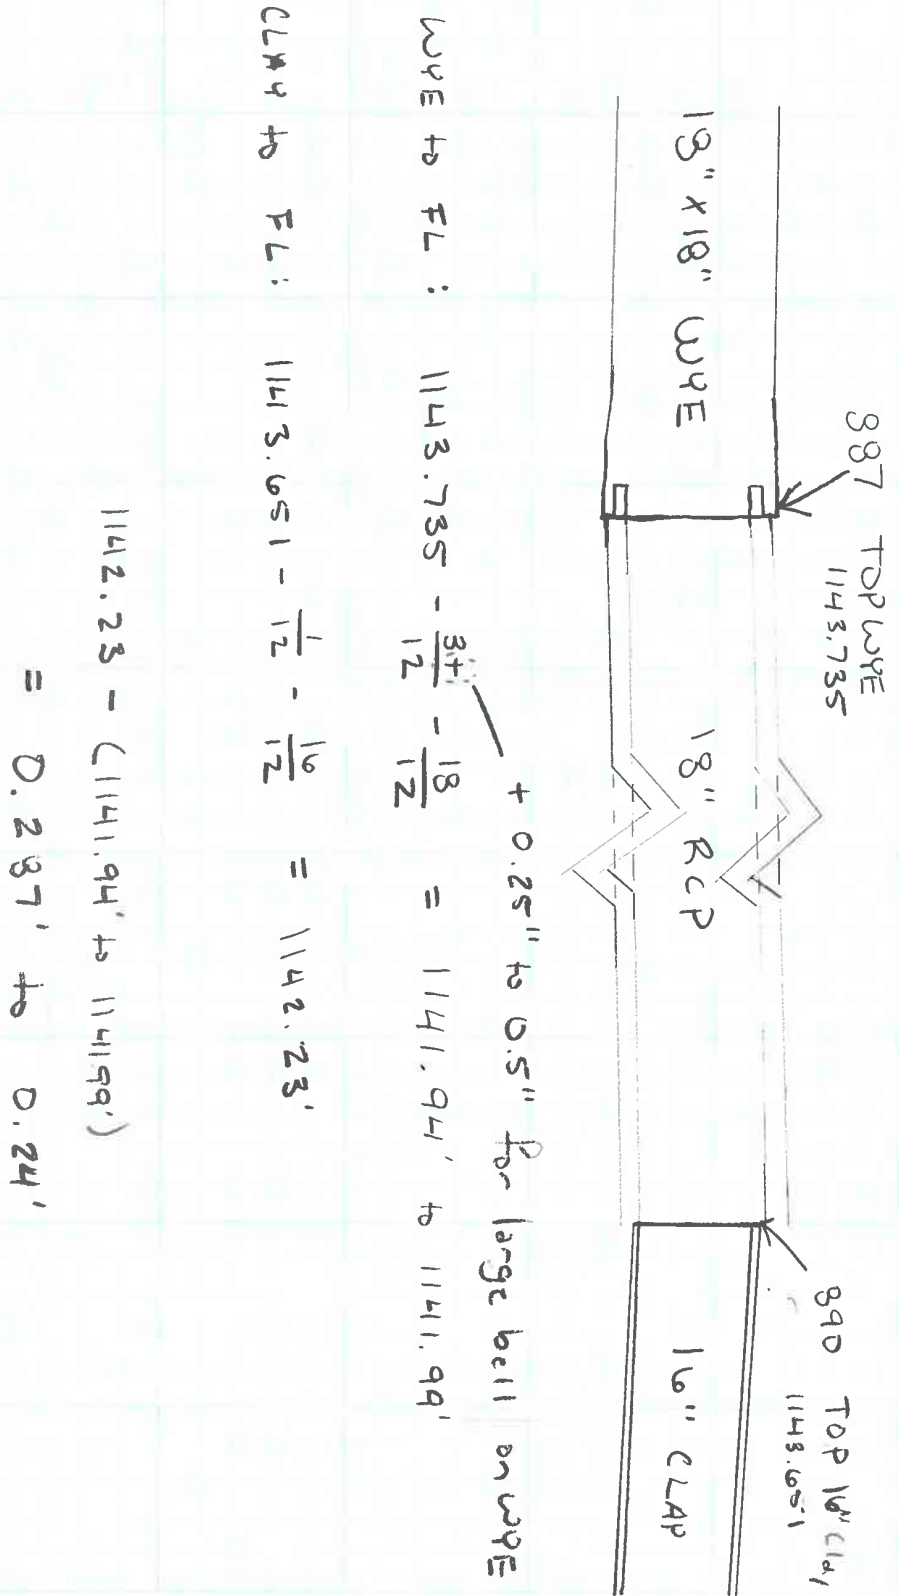 887 TOP WYE
1143.735
890 TOP 16" Clay
1143.651
18" X 18" WYE
18" RCP
16" CLAY
+ 0.25" to 0.5" for large bell on WYE
WYE to FL: 1143.735 - 3+/12 - 18/12 = 1141.94' to 1141.99'
CLAY to FL: 1143.651 - 1/12 - 16/12 = 1142.23'
1142.23 - (1141.94' to 1141.99')
= 0.287' to 0.24'